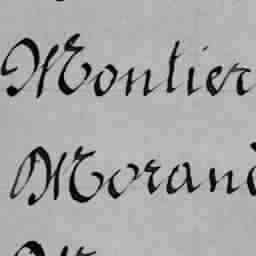 Montier
Morand